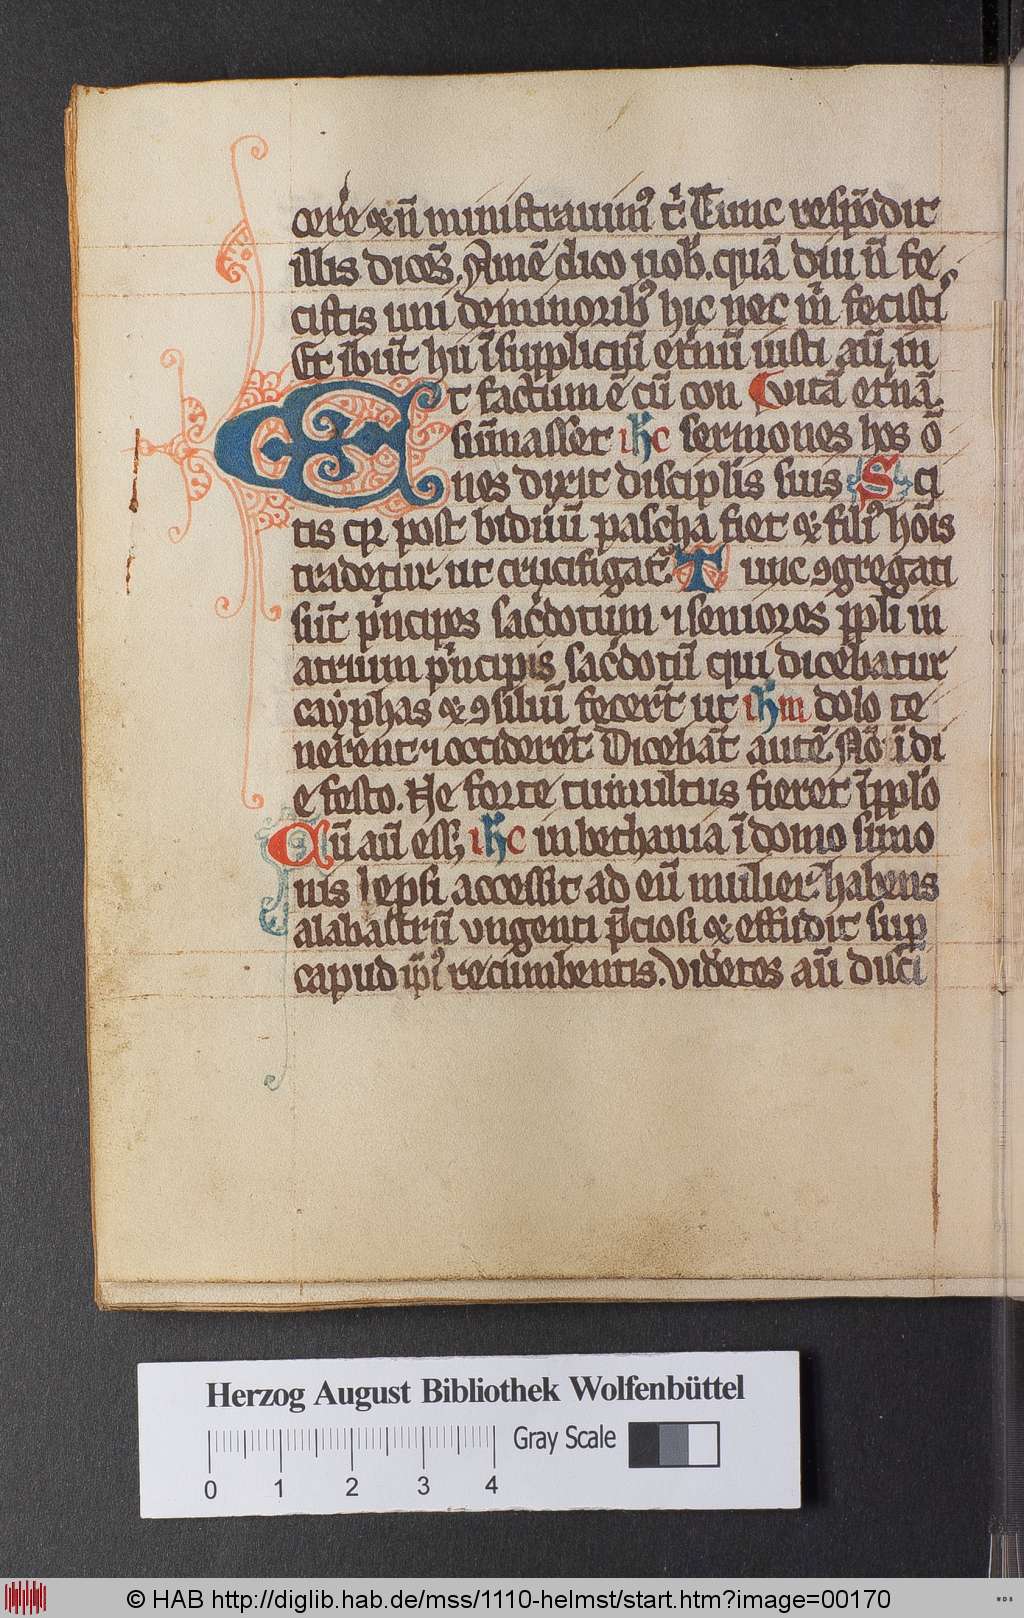 cere ⁊ n̄ ministrauimꝰ t̾. Tunc respōdit
illis dicēs. Amē dico uob̾. quā diu n̄ fe
cistis uni de minorib̾ hijc nec m̾ fecisti
Et ibūt hij ī suppliciū et̾nū iusti aū in
Et factum ē cū con vitā et̾nā.
sūmasset ihc sermones hos ō
nes dixit disciplis suis Sci
tis qꝛ post biduū pascha fiet ⁊ filiꝰ hōis
tradetur ut crucifigat̾. Tunc ꝯgregati
sūt p̾ncipes sac̾dotum ⁊ seniores ppl̾i in
atrium p̾ncipis sac̾dotū qui dicebatur
cayphas ⁊ ꝯsiliū fecer̄t ut ihm dolo te
nerent ⁊ occiderēt. Dicebāt autē Nō ī di
e festo. Ne forte tumultus fieret ī ppl̾o
Cū aū ess; ihc in bethania ī domo simo
nis lep̾si accessit ad eū mulier habens
alabastrū vngenti p̄ciosi ⁊ effudit sup
capud ip̄iꝰ recumbentis. Vidētes aū disci
Herzog August Bibliothek Wolfenbüttel
Gray Scale
0 1 2 3 4
© HAB http://diglib.hab.de/mss/1110-helmst/start.htm?image=00170